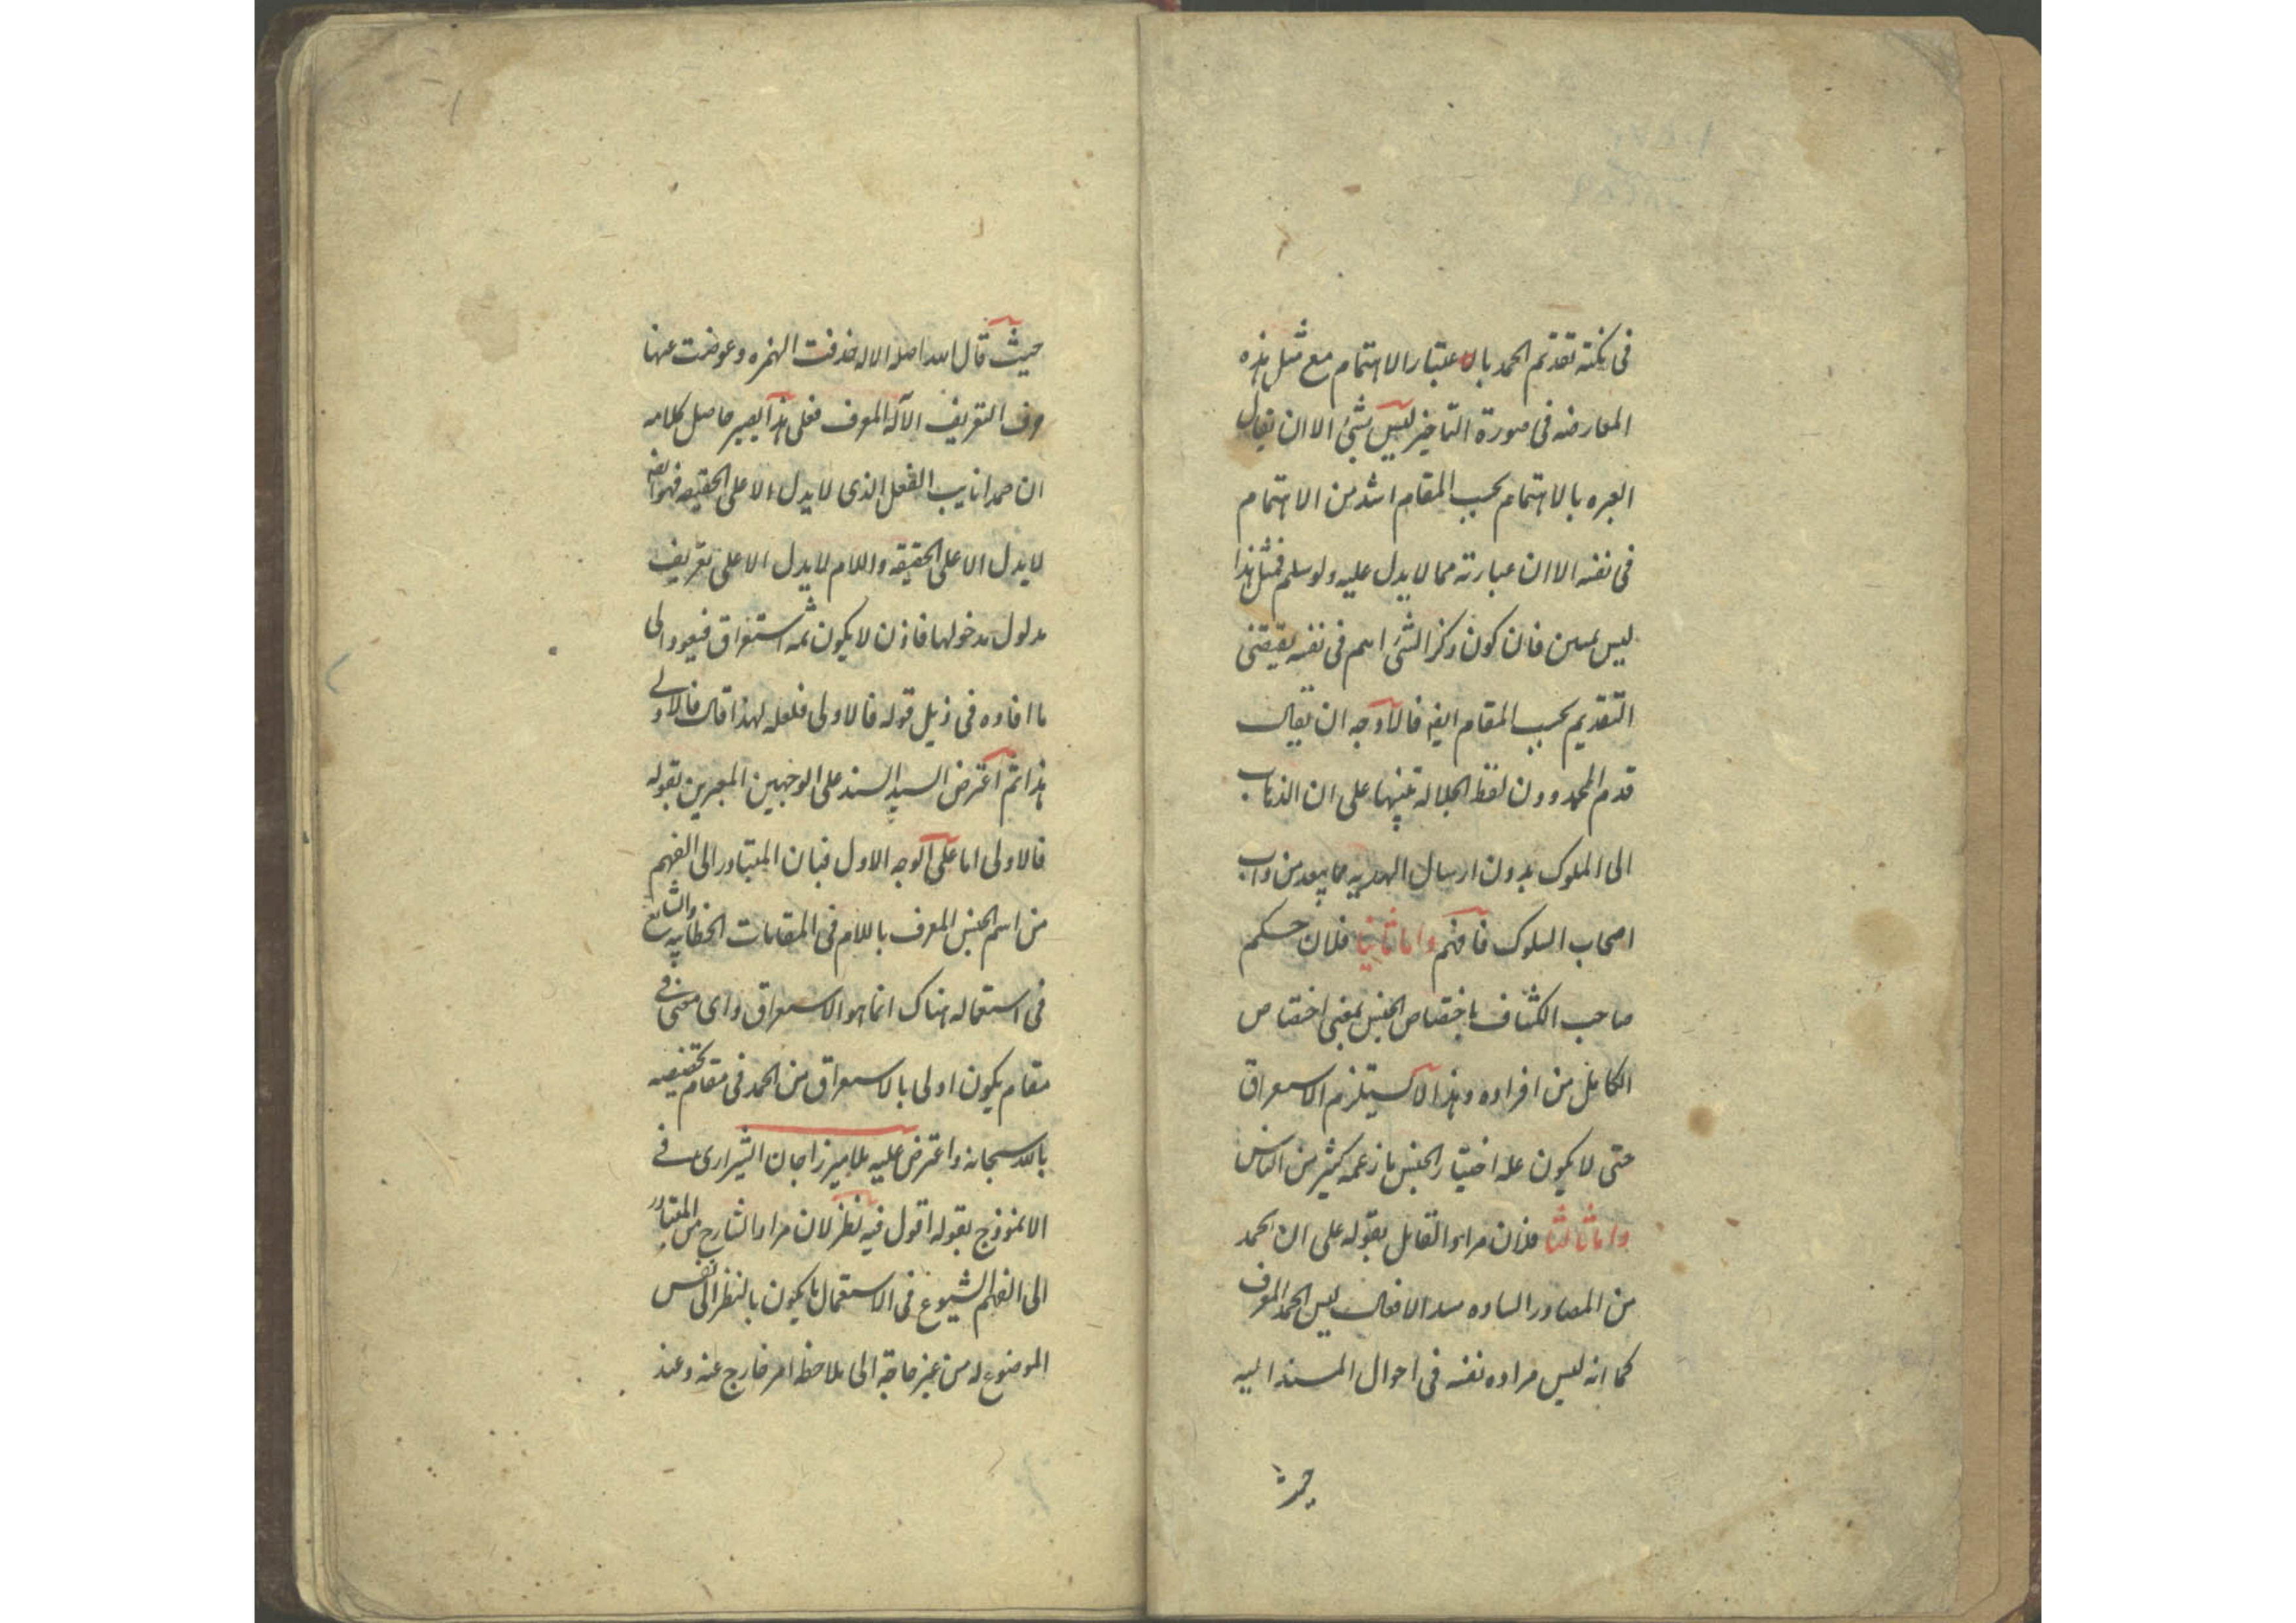 فى نكتة تقديم الحمد بالاعتبار الاهتمام مع مثل هذه
المعارضه فى صورة التاخير ليس بشئ الا ان يقال
العبره بالاهتمام بحسب المقام اشد من الاهتمام
فى نفسه الا ان عبارته مما لا يدل عليه ولو سلم فمثل هذا
ليس بمبين فان كون ذكر الشئ اهم فى نفسه يقتضى
التقديم بحسب المقام ايضه فالاوجه ان يقال
قدم الحمد دون لفظ الجلالة تنبيها على ان الذهاب
الى الملوك بدون ارسال الهديه مما يبعد من داب
اصحاب السلوك فافهم واما ثانيا فلان حكم
صاحب الكشاف باختصاص الجنس بمعنى اختصاص
الكامل من افراده وهذا لا يستلزم الاستغراق
حتى لا يكون علة اختيار الجنس ما زعمه كثير من الناس
واما ثالثا فلان مراد القائل بقوله على ان الحمد
من المصادر الساده مسد الافعال ليس الحمد المعرف
كما انه ليس مراده نفسه فى احوال المسند اليه
حيث
حيث قال الله اصله الاله حذفت الهمزه وعوضت عنها
حرف التعريف الآله المعرف فعلى هذا يصير حاصل كلامه
ان حمدا نايب الفعل الذى لا يدل الا على الحقيقه فهو ايضه
لا يدل الا على الحقيقه واللام لا يدل الا على تعريف
مدلول مدخولها فاذن لا يكون ثمه استغراق فيعود الى
ما افاده فى ذيل قوله فالاولى فلعله لهذا قال فالاولى
هذا ثم اعترض السيد السند على الوجهين المعبرين بقوله
فالاولى اما على الوجه الاول فبان المتبادر الى الفهم
من اسم الجنس المعرف باللام فى المقامات الخطابيه والشايع
فى استعماله هناك انما هو الاستغراق واى معنى فى
مقام يكون اولى بالاستغراق من الحمد فى مقام تخصيصه
بالله سبحانه واعترض عليه ملا ميرزا جان الشيرازى فى
الانموذج بقوله اقول فيه نظر لان مراد الشارح من المتبادر
الى الفهم الشيوع فى الاستعمال ما يكون بالنظر الى نفس
الموضوع له من غير حاجة الى ملاحظه امر خارج عنه وعند